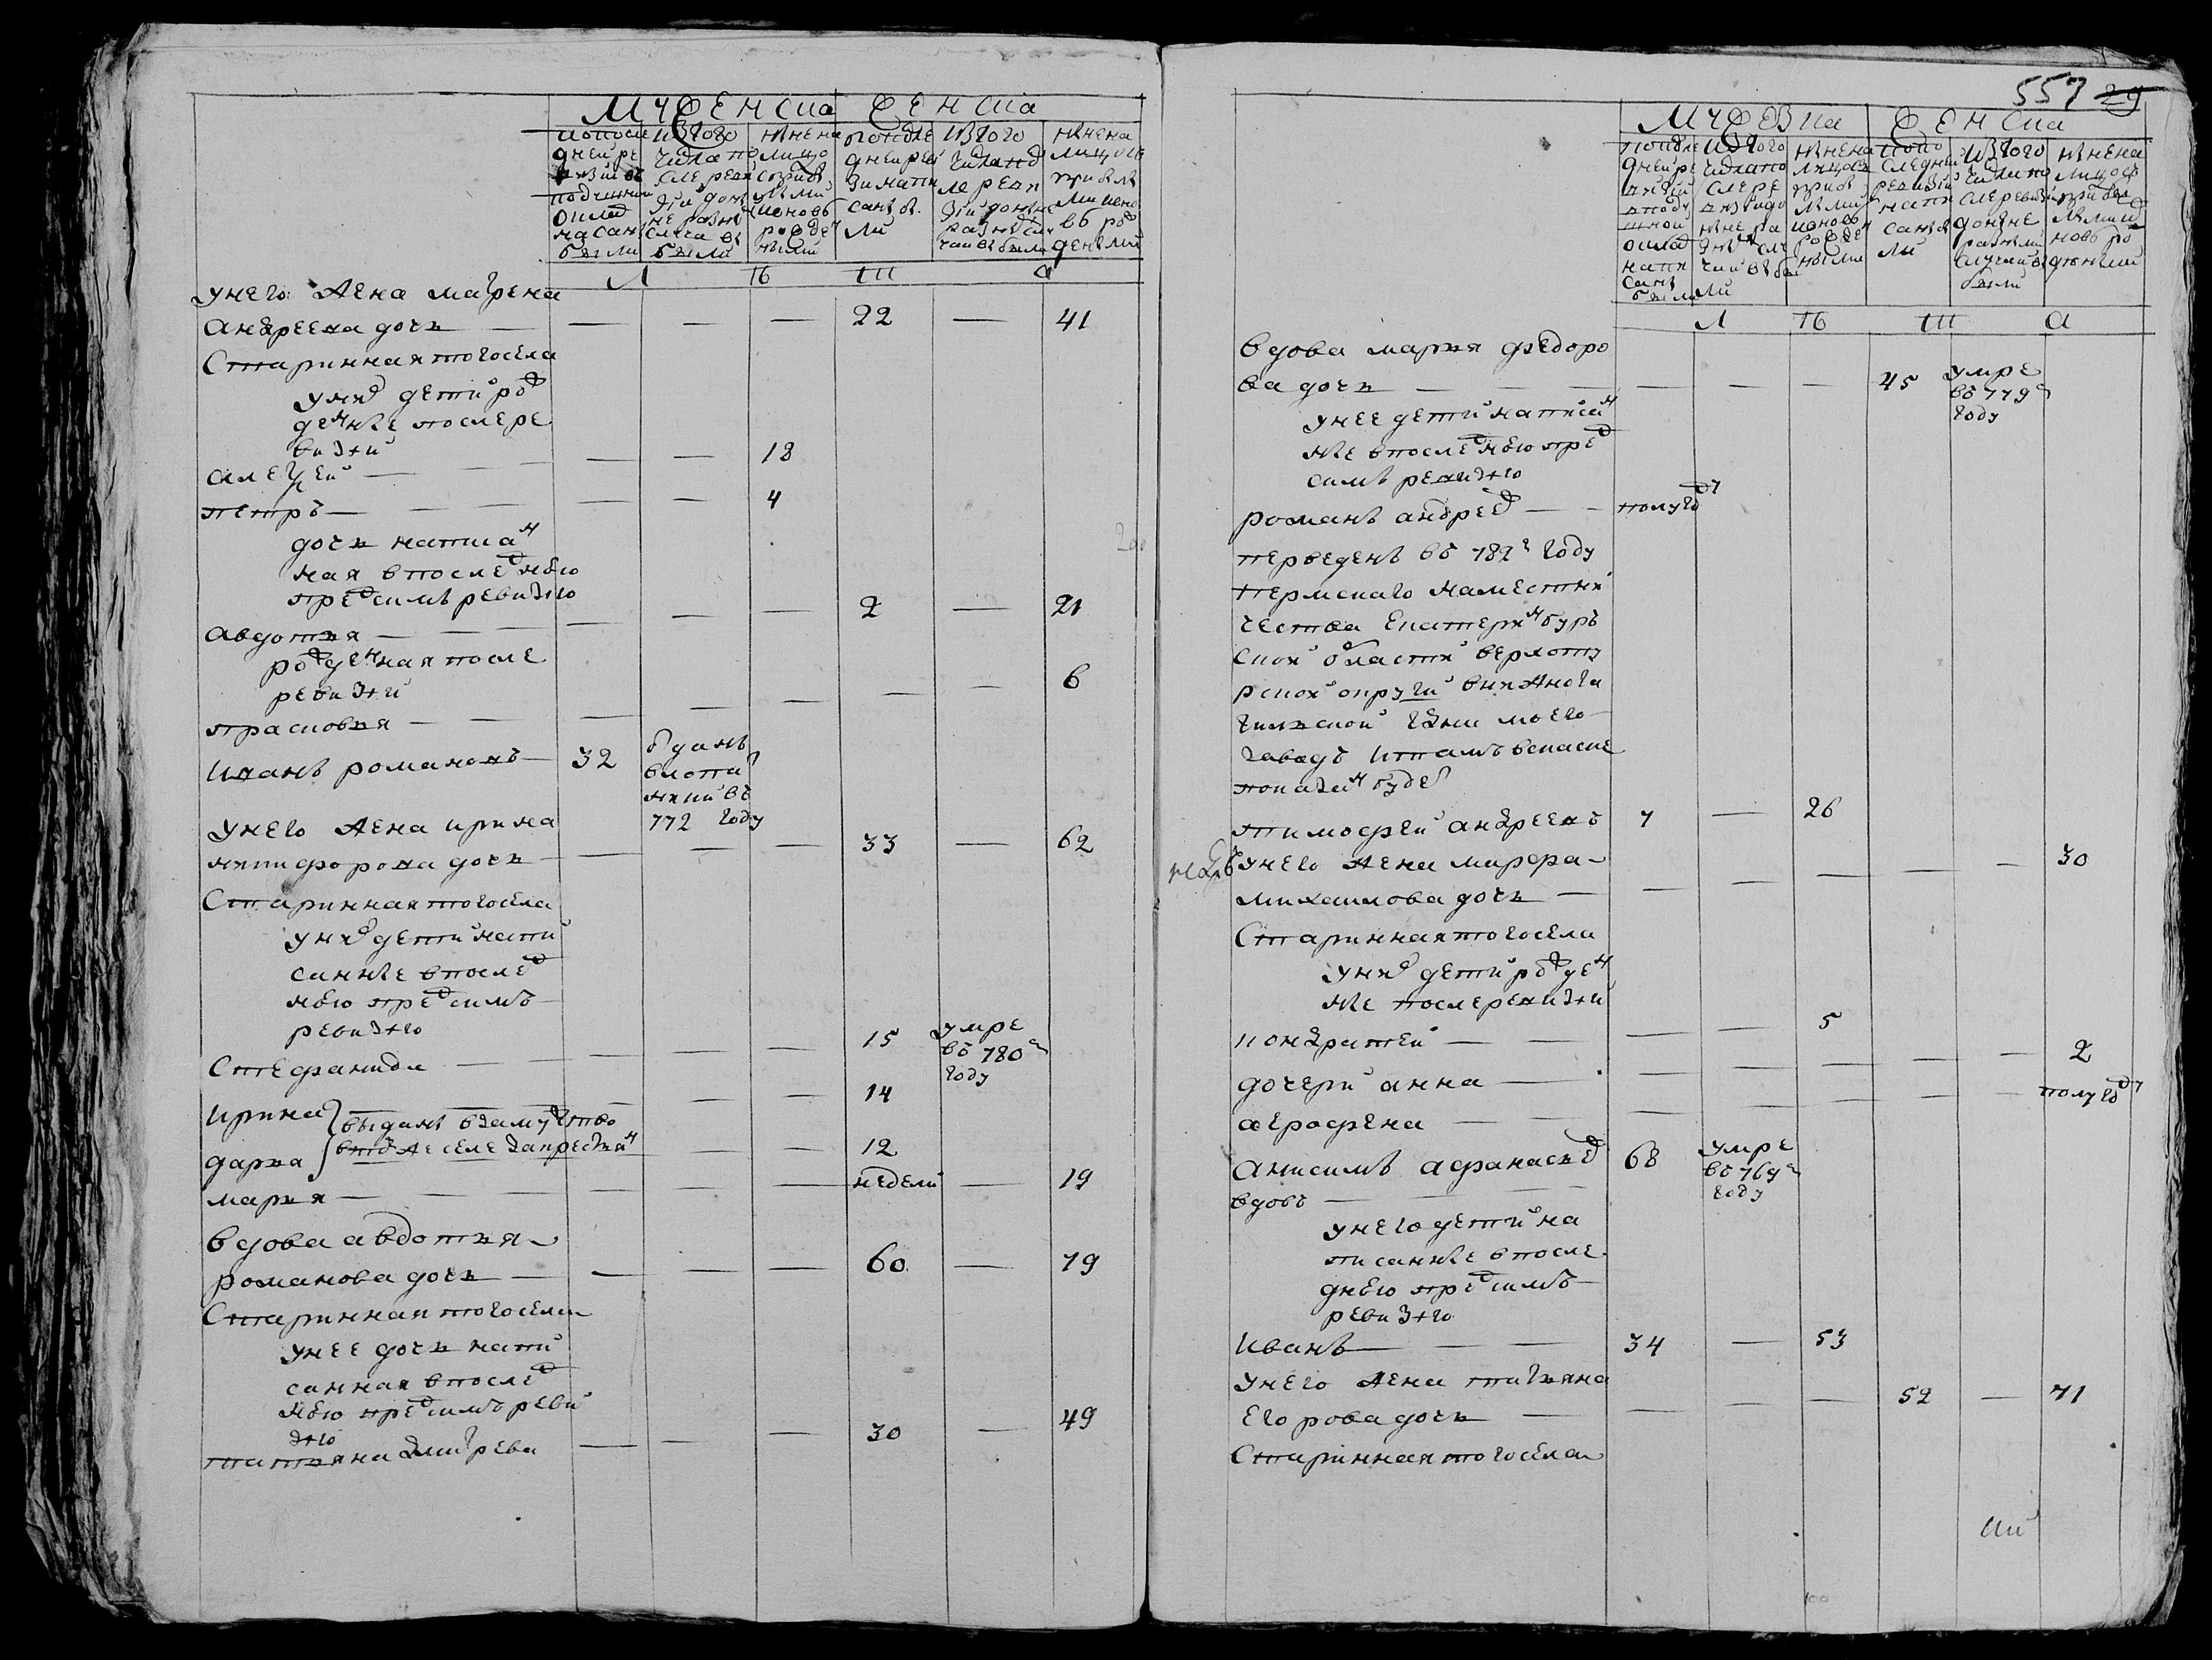 557 29
Мужеска женска
попосле
дней ре
визии въ
подушной
оклад
написан
были
изтого
числа по
сле реви
зии до ны
не разны
случаевъ
были
ныне на
лицо
съ прибы
лыми
и вновь
рожден
ными
попосле
дней ре
визии напи
саны бы
ли
изтого
числа по
сле реви
зии до ныне
разными слу
чаи выбыли
ныне на
лицо съ
прибы
лыми и вно
въ ро
ждеными
л тъ ш а
унего жена матрена
андреева дочь 22 41
Стариннаятогосела
уних дети рож
денные послере
визии
алексей 18
петръ 4
дочь написан
ная впоследнюю
предсимъ ревизию
авдотья 2 21
рожденная после
ревизии
прасковья 6
иванъ романовъ 32
зданъ
врекру
ты въ
772 году
унего жена ирина
никифорова дочь 33 62
Стариннаятогосела
уних дети напи
санные впослед
нюю предсимъ
ревизию
Стефанида 15
умре
въ 780м
году
ирина 14
выданы взамужство
дарья 12
втомже селе
марья недели 19
вдова авдотья
романова дочь 60 79
Стариннаятогосела
унее дочь напи
санная впослед
нюю предсимъ реви
зию
татьяна дмитрева 30 49
Мужеска женска
попосле
дней ре
визии
вподу
шной
оклад
напи
саны
были
изтого
числа по
сле ре
визии до
ныне ра
зных слу
чаи выбы
ли
ныне на
лицо съ
прибы
лыми
и вновь
рожден
ными
попо
следней
ревизии
напи
саны бы
ли
изтого
числа по
сле ревизии
до ныне
разными
случаи вы
были
ныне на
лицо съ
прибы
лыми и
вновь ро
ждеными
л тъ ш а
вдова марья федоро
ва дочь 45
умре
въ 779м
году
унее дети написан
ные впоследнюю пред
симъ ревизию
романъ андреев полугод
переведенъ въ 782м году
пермскаго наместни
чества Екатеринбург
ской области верхоту
рской округи внижнота
гильской ево
заводъ итамъ всписке
показан будет
тимофей андреевъ 7 26
унего жена марфа 30
михаилова дочь
Стариннаятогосела
уних дети рожден
ные послеревизии
кондратей 5
дочери анна 2
аграфена полугод
анисимъ афанасьев 68
умре
въ 769м
году
вдовъ
унего дети на
писанные впосле
днюю предсимъ
ревизию
Иванъ 34 53
унего жена татьяна
Егорова дочь 52 71
Стариннаятогосела